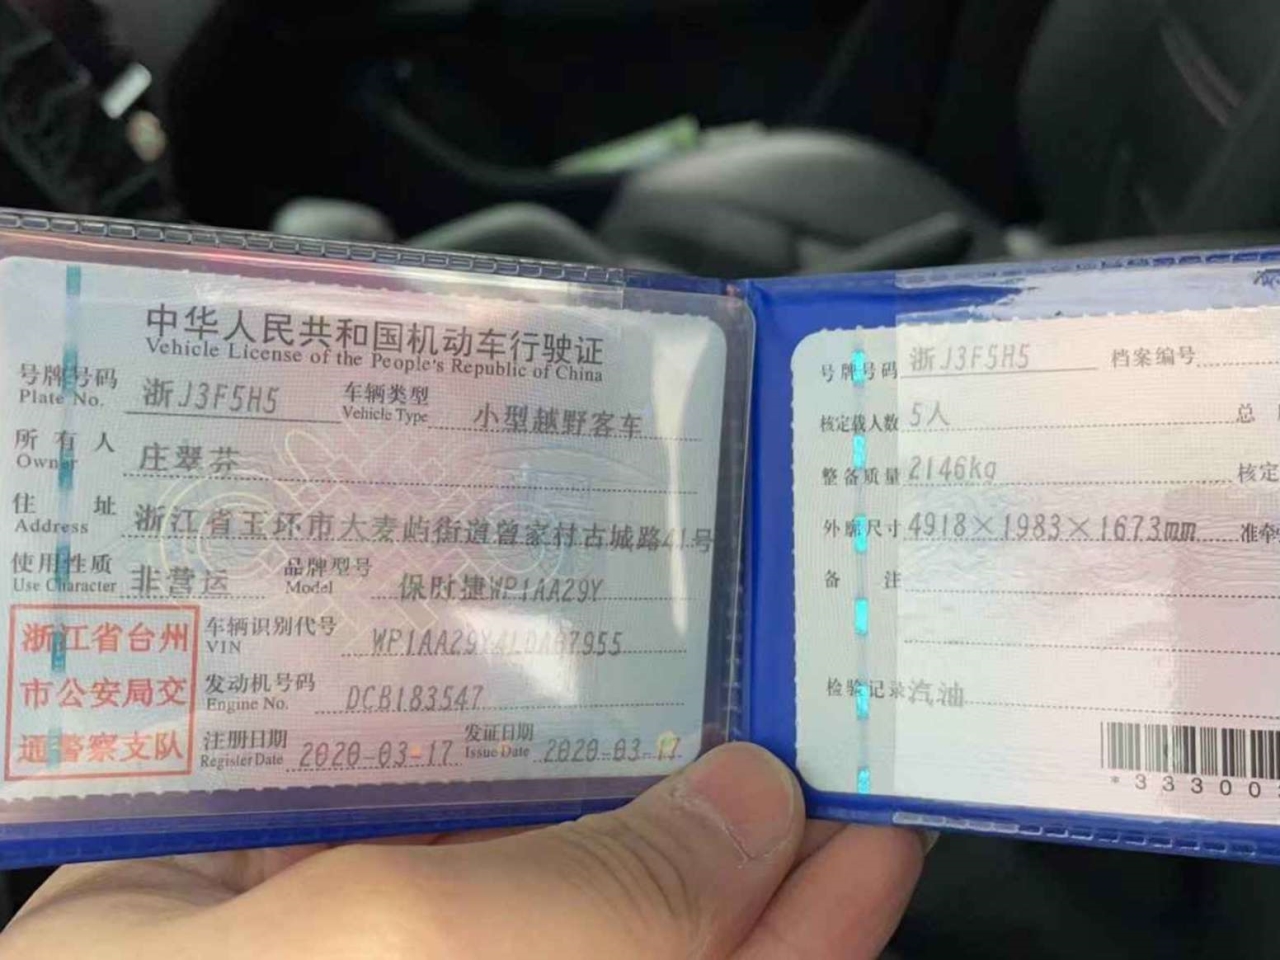 中华人民共和国机动车行驶证
Vehicle License of the People's Republic of China
号牌号码 浙J3F5H5 车辆类型 小型越野客车
Plate No. Vehicle Type
所有人 庄翠芬
Owner
住址 浙江省玉环市大麦屿街道曾家村古城路41号
Address
使用性质 非营运 品牌型号 保时捷WP1AA29Y
Use Character Model
浙江省台州
市公安局交
通警察支队
车辆识别代号
VIN
发动机号码 DCB183547
Engine No.
注册日期 2020-03-17 发证日期 2020-03-17
Register Date Issue Date
号牌号码 浙J3F5H5 档案编号
核定载人数 5人 总
整备质量 2146kg 核定
外廓尺寸 4918×1983×1673mm 准牵
备注
检验记录 汽油
*33300